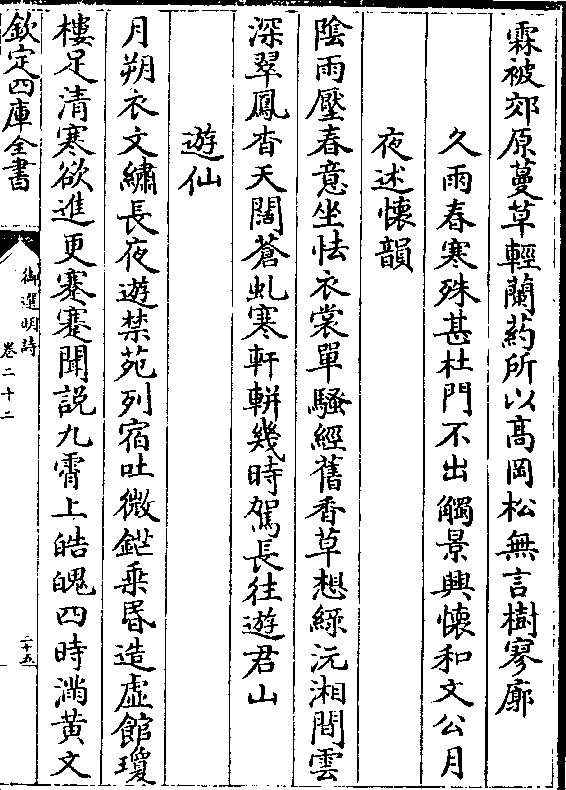 霖被郊原蔓草輕蘭葯所以高岡松無言樹寥廓
久雨春寒殊甚杜門不出觸景興懷和文公月
夜述懷韻
陰雨壓春意坐怯衣裳單騷經舊香草想綠沅湘間雲
深翠鳳杳天闊蒼虬寒軒軿幾時駕長往遊君山
遊仙
月朔衣文繡長夜遊禁苑列宿吐微鋩乗昬造虚館瓊
樓足清寒欲進更蹇蹇聞説九霄上皓魄四時滿黄文
欽定四庫全書
御選明詩
卷二十二
二十五